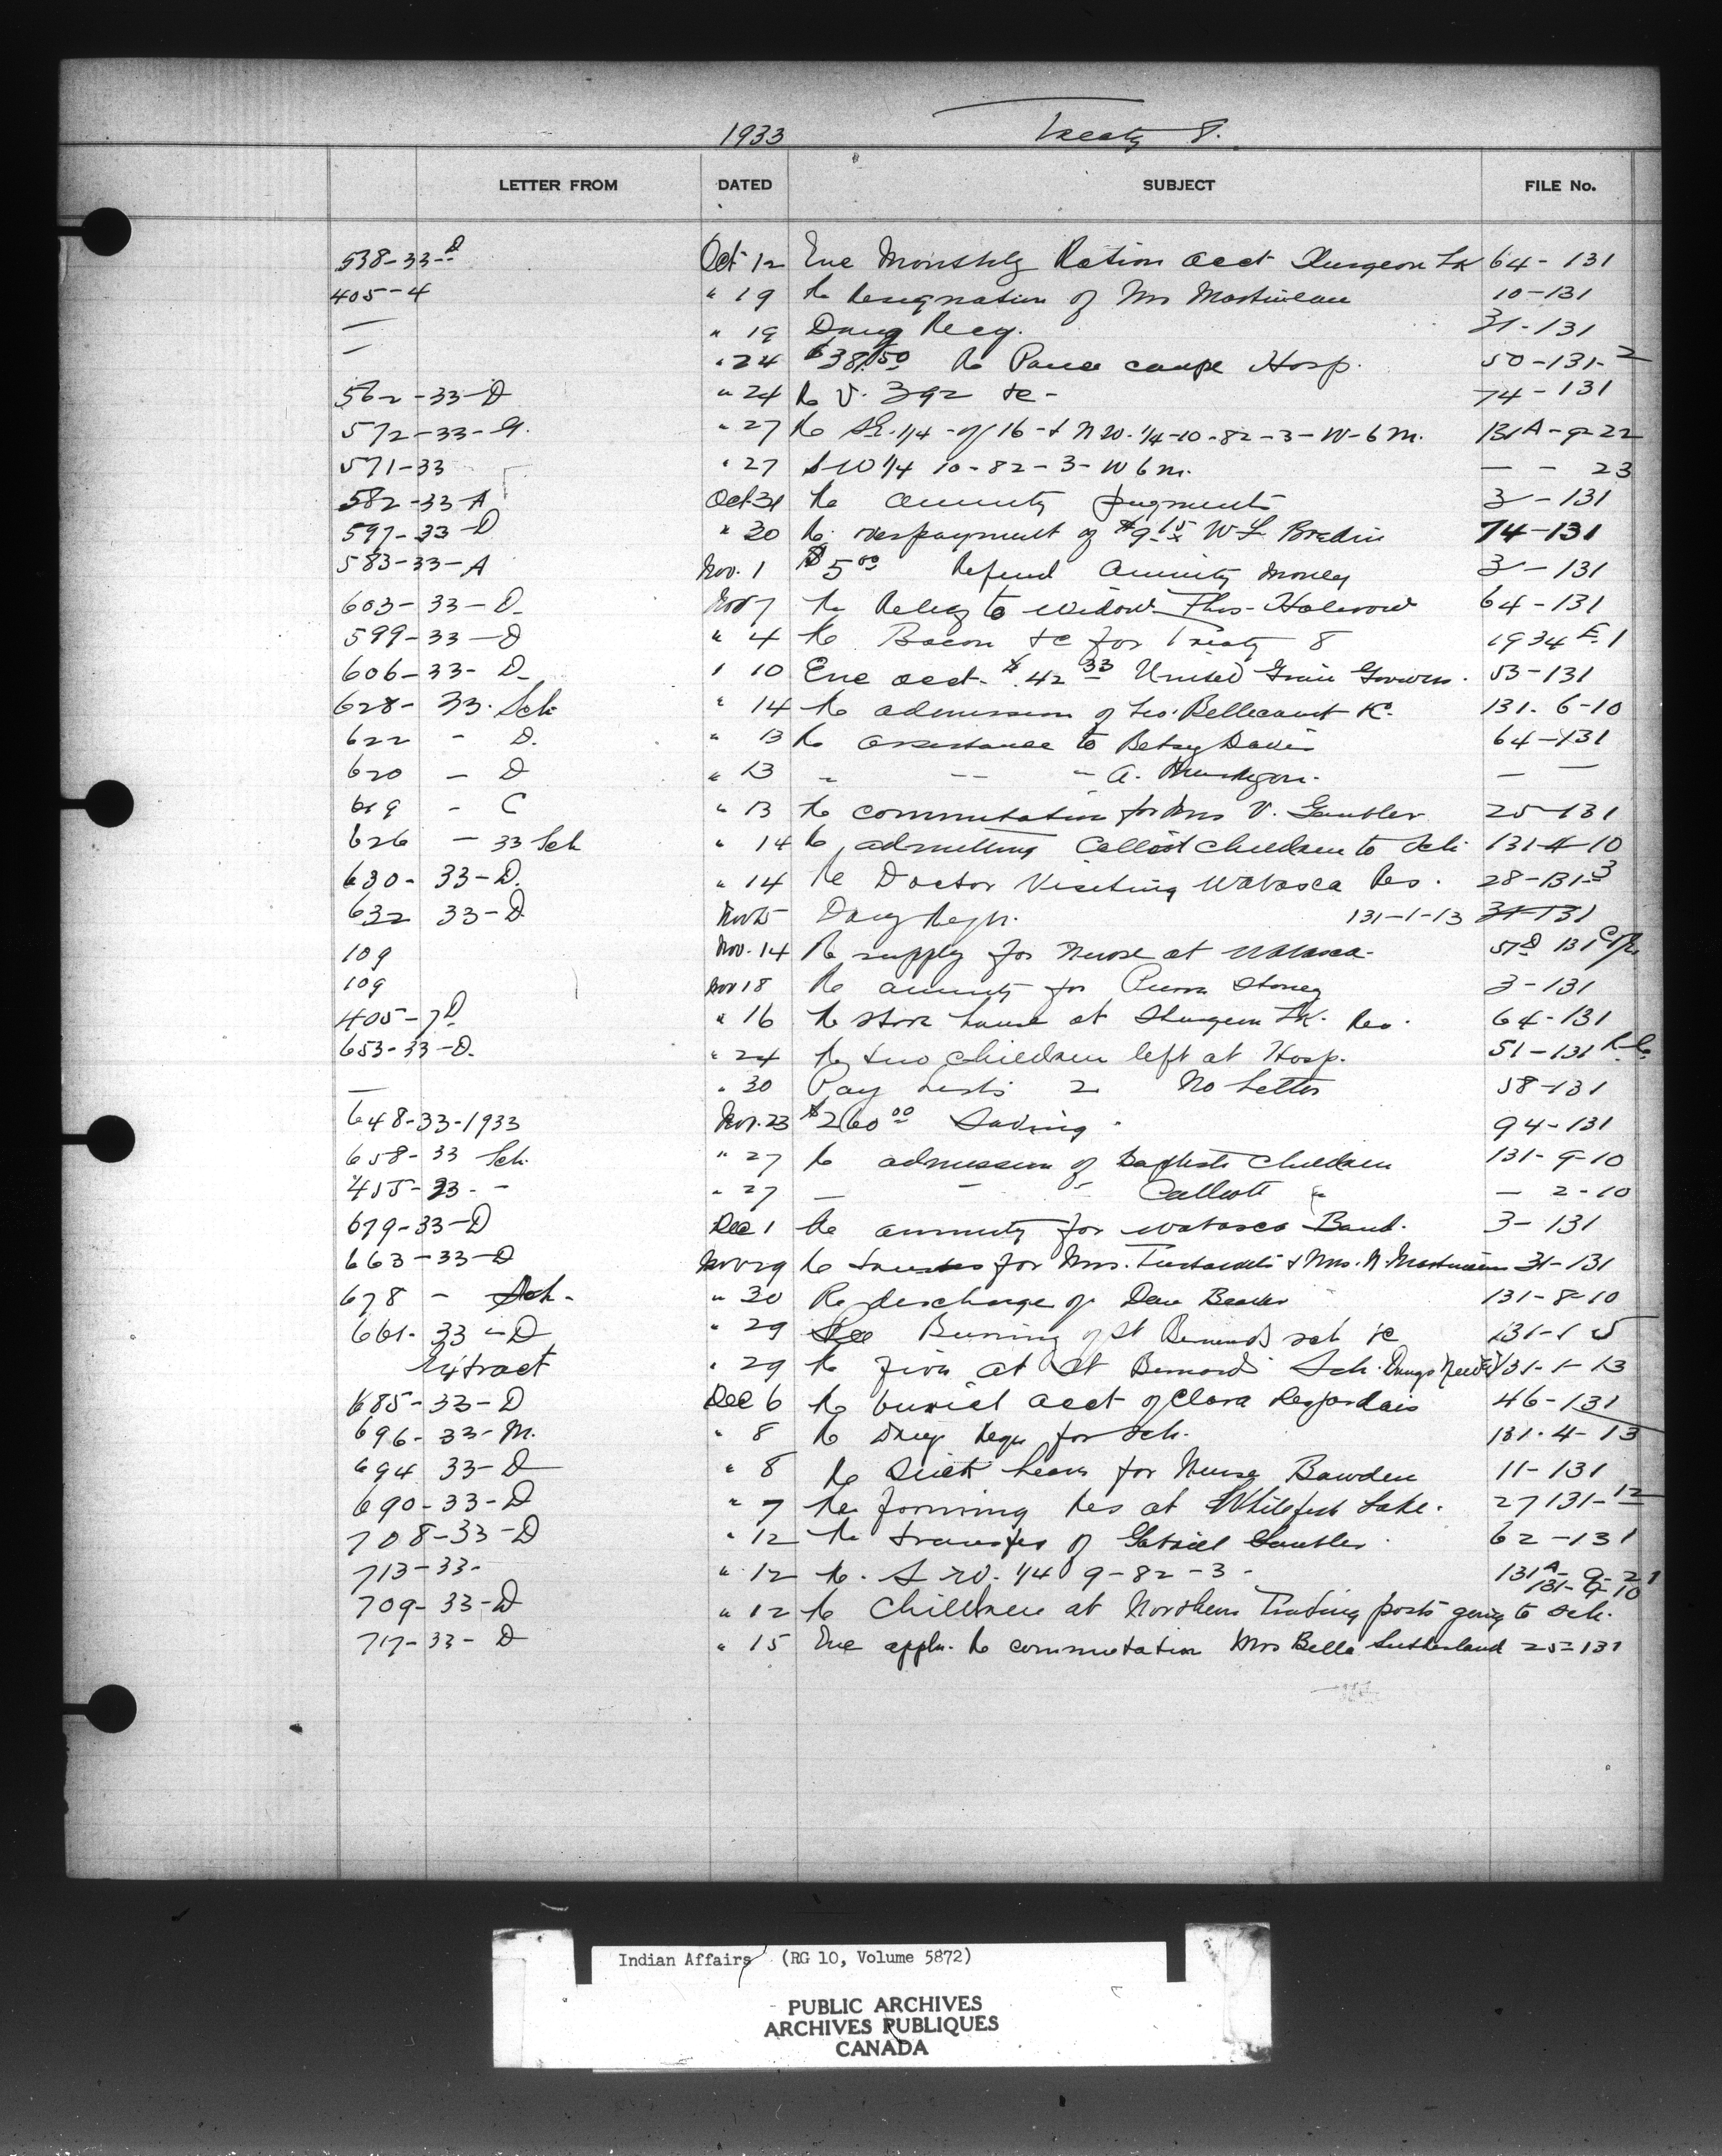 1933 Treaty 8.
LETTER FROM DATED SUBJECT FILE No.
538-33-D Oct 12 Enc Monthly Ration acct Sturgeon Lk 64-131
405-4 " 19 Re Resignation of Mrs Martineau 10-131
— " 19 Drug Reqn. 31-131
— " 24 $38.50 Re Pouce coupe Hosp. 50-131-2
562-33-D " 24 Re V. 392 &c- 74-131
572-33-G. " 27 Re SE. 1/4-of 16-& N W. 1/4-10-82-3-W-6 M. 131A-9-22
571-33 " 27 S-W 1/4 10-82-3-W 6 M. — - 23
582-33-A Oct 31 Re annuity payments 3-131
597-33-D " 30 Re overpayment of $9.15 W L Bredin 74-131
583-33-A Nov. 1 $5.00 Refund Annuity Money 3-131
603-33-D- Nov 7 Re Relief to widow Thos- 64-131
599-33-D " 4 Re Bacon &c for Treaty 8 1934 E-1
606-33-D- " 10 Enc acct- $42.33 United Grain Growers. 53-131
628-33-Sch " 14 Re admission of Bellecourt 131-6-10
622 - D. " 13 Re assistance to Betsy Davis 64-131
620 - D " 13 " — " A. — —
619 - C " 13 Re commutation for Mrs V. Gambler 25-131
626 - 33 Sch " 14 Re admitting Calliot children to Sch. 131-4-10
630-33-D. " 14 Re Doctor Visiting Wabasca Res. 28-131-3
632 33-D. Nov 15 Drug Reqn. 131-1-13 31-131
109 Nov. 14 Re supply for Nurse at Wabasca. 57D 131
109 Nov 18 Re annuity for Stoney 3-131
405-7D " 16 Re store house at Sturgeon Lk. Res. 64-131
653-33-D. " 24 Re two children left at Hosp. 51-131
— " 30 Pay Lists 2 No Letter 58-131
648-33-1933 Nov. 23 $260.00 94-131
658-33 Sch. " 27 Re admission of Baptiste Children 131-9-10
455-33. - " 27 — - " Calliott " — 2-10
679-33-D Dec 1 Re annuity for Wabasca Band. 3-131
663-33-D Nov 29 Re for Mrs. & Mrs. N. Martineau 31-131
678 - Sch- " 30 Re discharge of Dan Beaver 131-8-10
661-33-D " 29 Burning of St Bernards sch &c 131-1-5
Extract " 29 Re fire at St Bernards Sch. Drugs needed 131-1-13
685-33-D Dec 6 Re burial acct of Clara Desjardais 46-131
696-33-M. " 8 Re Drug Reqn for Sch. 131-4-13
694 33-D " 8 Re Sick leave for Nurse Bawden 11-131
690-33-D " 7 Re forming Res at Whitefish Lake. 27 131-12
708-33-D " 12 Re transfer of Gabriel Gambler. 62-131
713-33- " 12 Re. S W. 1/4 9-82-3- 131A-9-21
131-9-10
709-33-D " 12 Re Children at Northern Trading posts going to sch.
717-33-D " 15 Enc appln. Re commutation Mrs Bella Sutherland 25-131
Indian Affairs (RG 10, Volume 5872)
PUBLIC ARCHIVES
ARCHIVES PUBLIQUES
CANADA